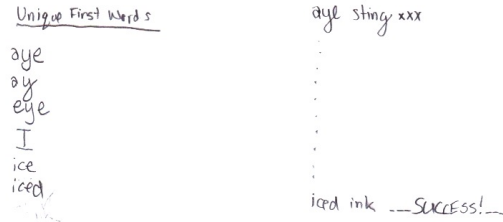 Unique First Words
aye
ay
eye
I
ice
iced
aye sting xxx
iced ink ---SUCCESS!---